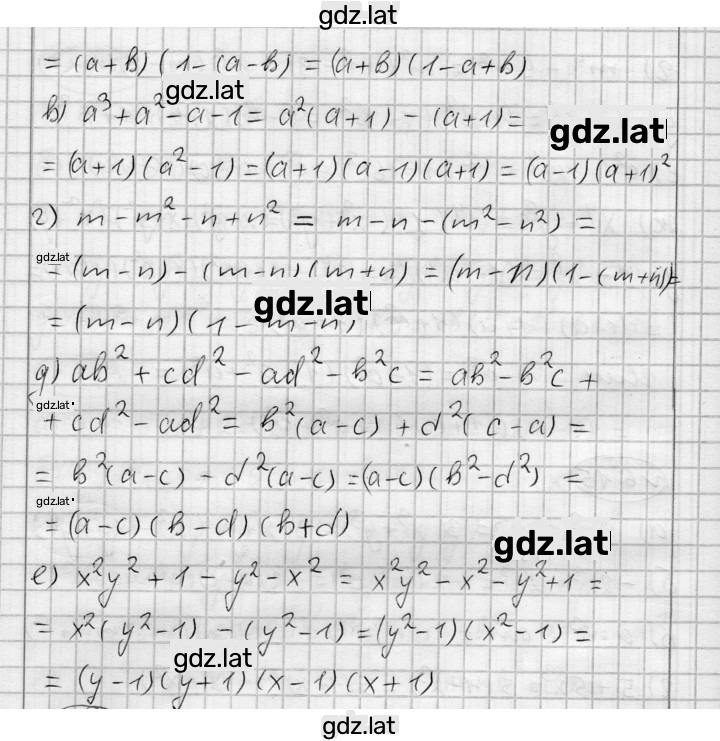 gdz.lat
= (a+b) (1-(a-b) = (a+b) (1-a+b)
gdz.lat
в) a³+a²-a-1 = a²(a+1) - (a+1) =
gdz.lat
= (a+1) (a²-1) = (a+1) (a-1) (a+1) = (a-1) (a+1)²
г) m-m²-n+n² = m-n-(m²-n²) =
gdz.lat
= (m-n) - (m-n) (m+n) = (m-n) (1-(m+n)) =
gdz.lat
= (m-n) (1-m-n)
д) ab²+cd²-ad²-b²c = ab²-b²c +
gdz.lat
+ cd²-ad² = b²(a-c) + d²(c-a) =
= b²(a-c) - d²(a-c) = (a-c) (b²-d²) =
gdz.lat
= (a-c) (b-d) (b+d)
gdz.lat
е) x²y²+1-y²-x² = x²y²-x²-y²+1 =
= x²(y²-1) - (y²-1) = (y²-1) (x²-1) =
gdz.lat
= (y-1) (y+1) (x-1) (x+1)
gdz.lat